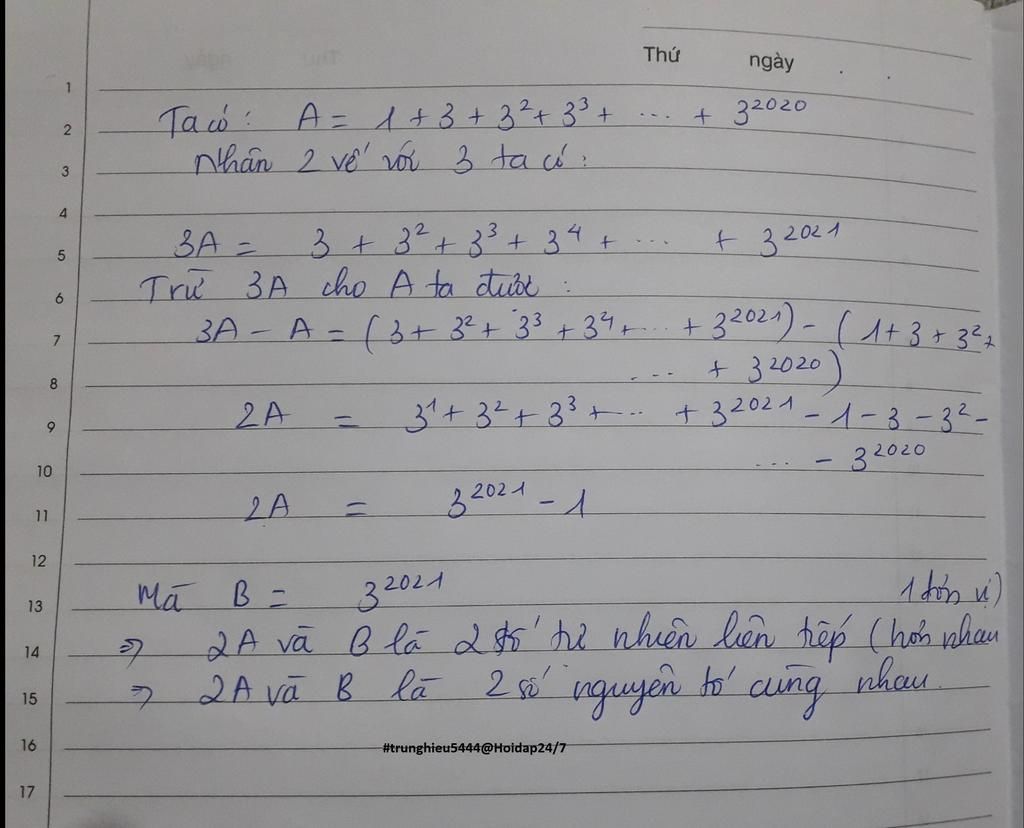 Thứ ngày . .
1
2 Ta có: A = 1 + 3 + 3² + 3³ + ... + 3²⁰²⁰
3 Nhân 2 vế với 3 ta có:
4
5 3A = 3 + 3² + 3³ + 3⁴ + ... + 3²⁰²¹
6 Trừ 3A cho A ta được:
7 3A - A = (3 + 3² + 3³ + 3⁴ + ... + 3²⁰²¹) - (1 + 3 + 3² +
8 ... + 3²⁰²⁰)
9 2A = 3¹ + 3² + 3³ + ... + 3²⁰²¹ - 1 - 3 - 3² -
10 ... - 3²⁰²⁰
11 2A = 3²⁰²¹ - 1
12
13 Mà B = 3²⁰²¹ 1 đơn vị)
14 => 2A và B là 2 số tự nhiên liên tiếp (hơn nhau
15 => 2A và B là 2 số nguyên tố cùng nhau.
16 #trunghieu5444@Hoidap24/7
17